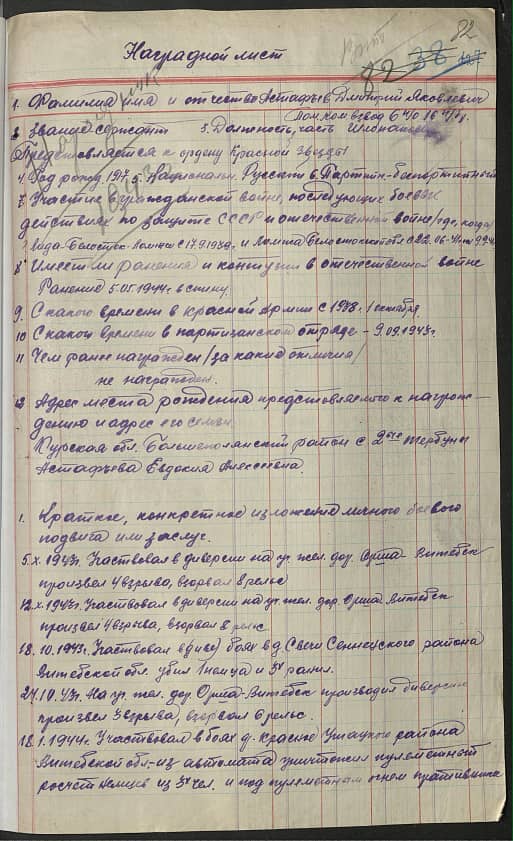 82
82 38 127
Наградной лист
1. Фамилия имя и отчество Астафьев Дмитрий Яковлевич
2. Звание сержант 3. Должность, часть
Представляется к ордену Красной Звезды
4. Год рожд. 5. Националн. Русский 6. Партийн - беспартийный
7. Участие в гражданской войне, последующих боевых
действиях по защите СССР и отечественной войне /где, когда
8. Имеет ли ранения и контузии в отечественной войне
Ранение 5.05.1944г. в спину.
9. С какого времени в Красной Армии с 1938. 1 октября.
10 С какого времени в партизанском отряде - 9.09.1943г.
11 Чем ранее награжден /за какие отличия/
не награжден.
12 Адрес места рождения представляемого к награж-
дению и адрес его семьи
Курская обл. Большеполянский район с 2ое Тербуны
Астафьева Евдокия Алексеевна.
1. Краткое, конкретное изложение личного боевого
подвига или заслуг.
5.X.1943г. Участвовал в диверсии на ур. жел. дор. Орша - Витебск
произвел 4 взрыва, взорвал 8 рельс
12.X.1943г. Участвовал в диверсии на ур. жел. дор. Орша Витебск
произвел 4 взрыва, взорвал 8 рельс
18.10.1943г. Участвовал в бою в д. Свечи Сенненского района
Витебской обл. убил 1 немца и 3х ранил.
27.10.43г. На ур. жел. дор. Орша - Витебск производил диверсию
произвел 3 взрыва, взорвал 6 рельс.
18.1.1944г. Участвовал в боях д. Красное Ушацкого района
Витебской обл. - из автомата уничтожил пулеметный
расчет немцев из 3х чел. и под пулеметным огнем противника